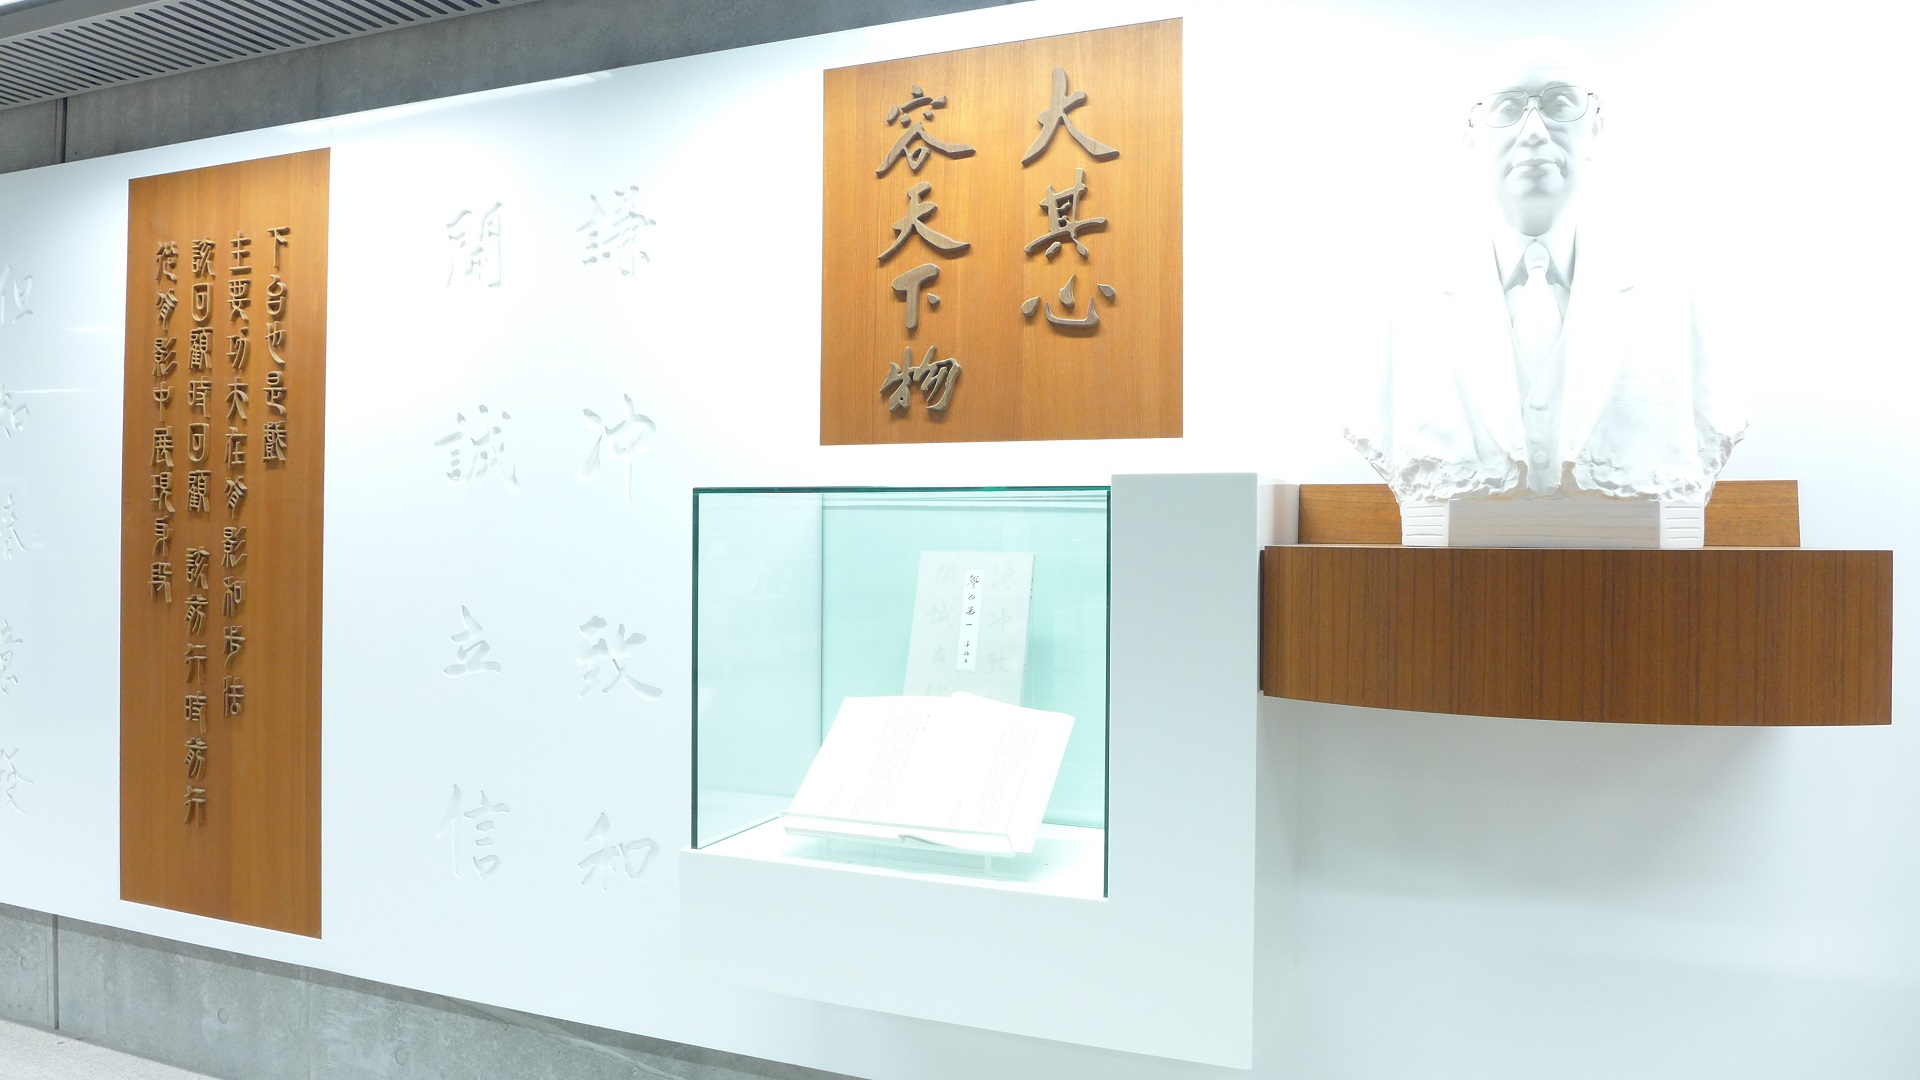 大其心
容天下物
謙冲致和
開誠立信
下台也是戲
主要功夫在背影和步法
該回顧時回顧 該前行時前行
從背影中展現身段
但
和
春
意
發
謙冲致
開誠立信